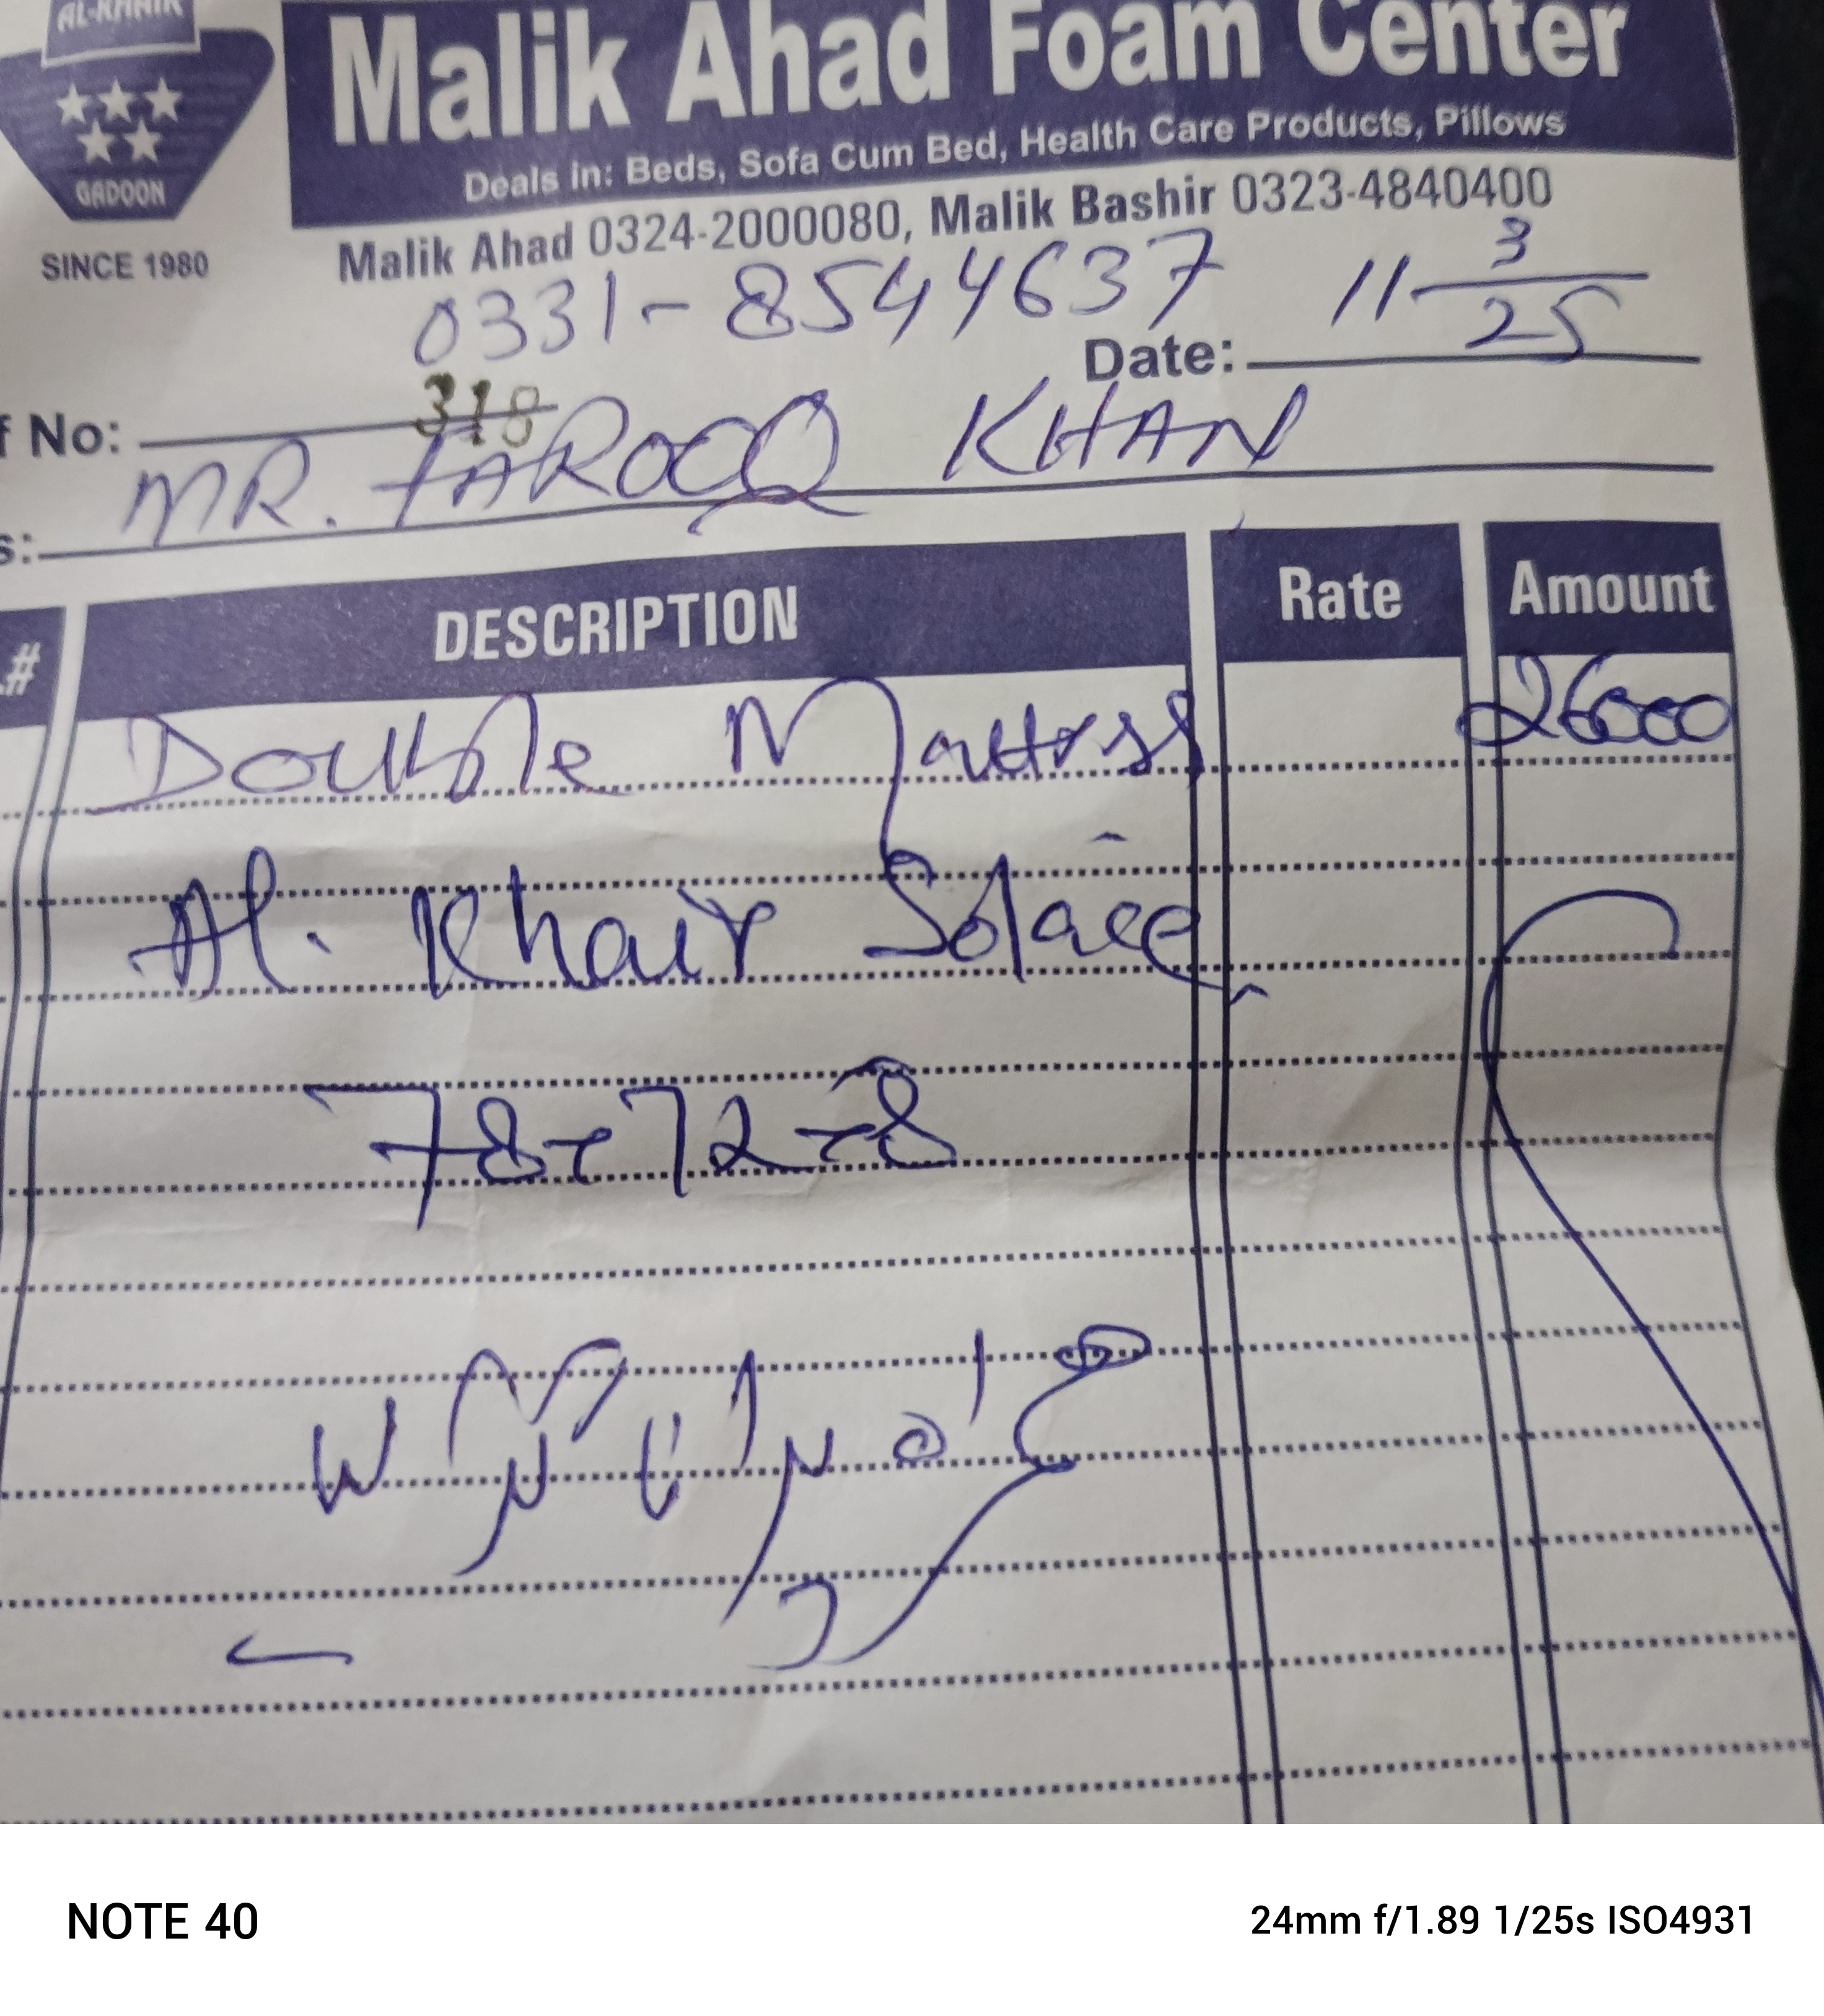 AL-KHAIR
GADOON
SINCE 1980
Malik Ahad Foam Center
Deals in: Beds, Sofa Cum Bed, Health Care Products, Pillows
Malik Ahad 0324-2000080, Malik Bashir 0323-4840400
0331-8544637
Date: 11 3/25
f No: 318
s: MR. FAROOQ KHAN
# DESCRIPTION Rate Amount
Double Mattress 26000
Al. Khair Solace
78-72-8
NOTE 40
24mm f/1.89 1/25s ISO4931